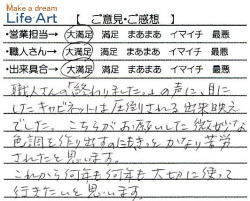 Make a dream
Life Art 【 ご意見・ご感想 】
・営業担当→ 大満足 満足 まあまあ イマイチ 最悪
・職人さん→ 大満足 満足 まあまあ イマイチ 最悪
・出来具合→ 大満足 満足 まあまあ イマイチ 最悪
職人さんの「終わりました。」の声に、目に
したキャビネットは圧倒される出来映え
でした。こちらがお願いした微妙な
色調を作り出すのにもきっとかなり苦労
されたと思います。
これから何年も何年も大切に使って
行きたいと思います。